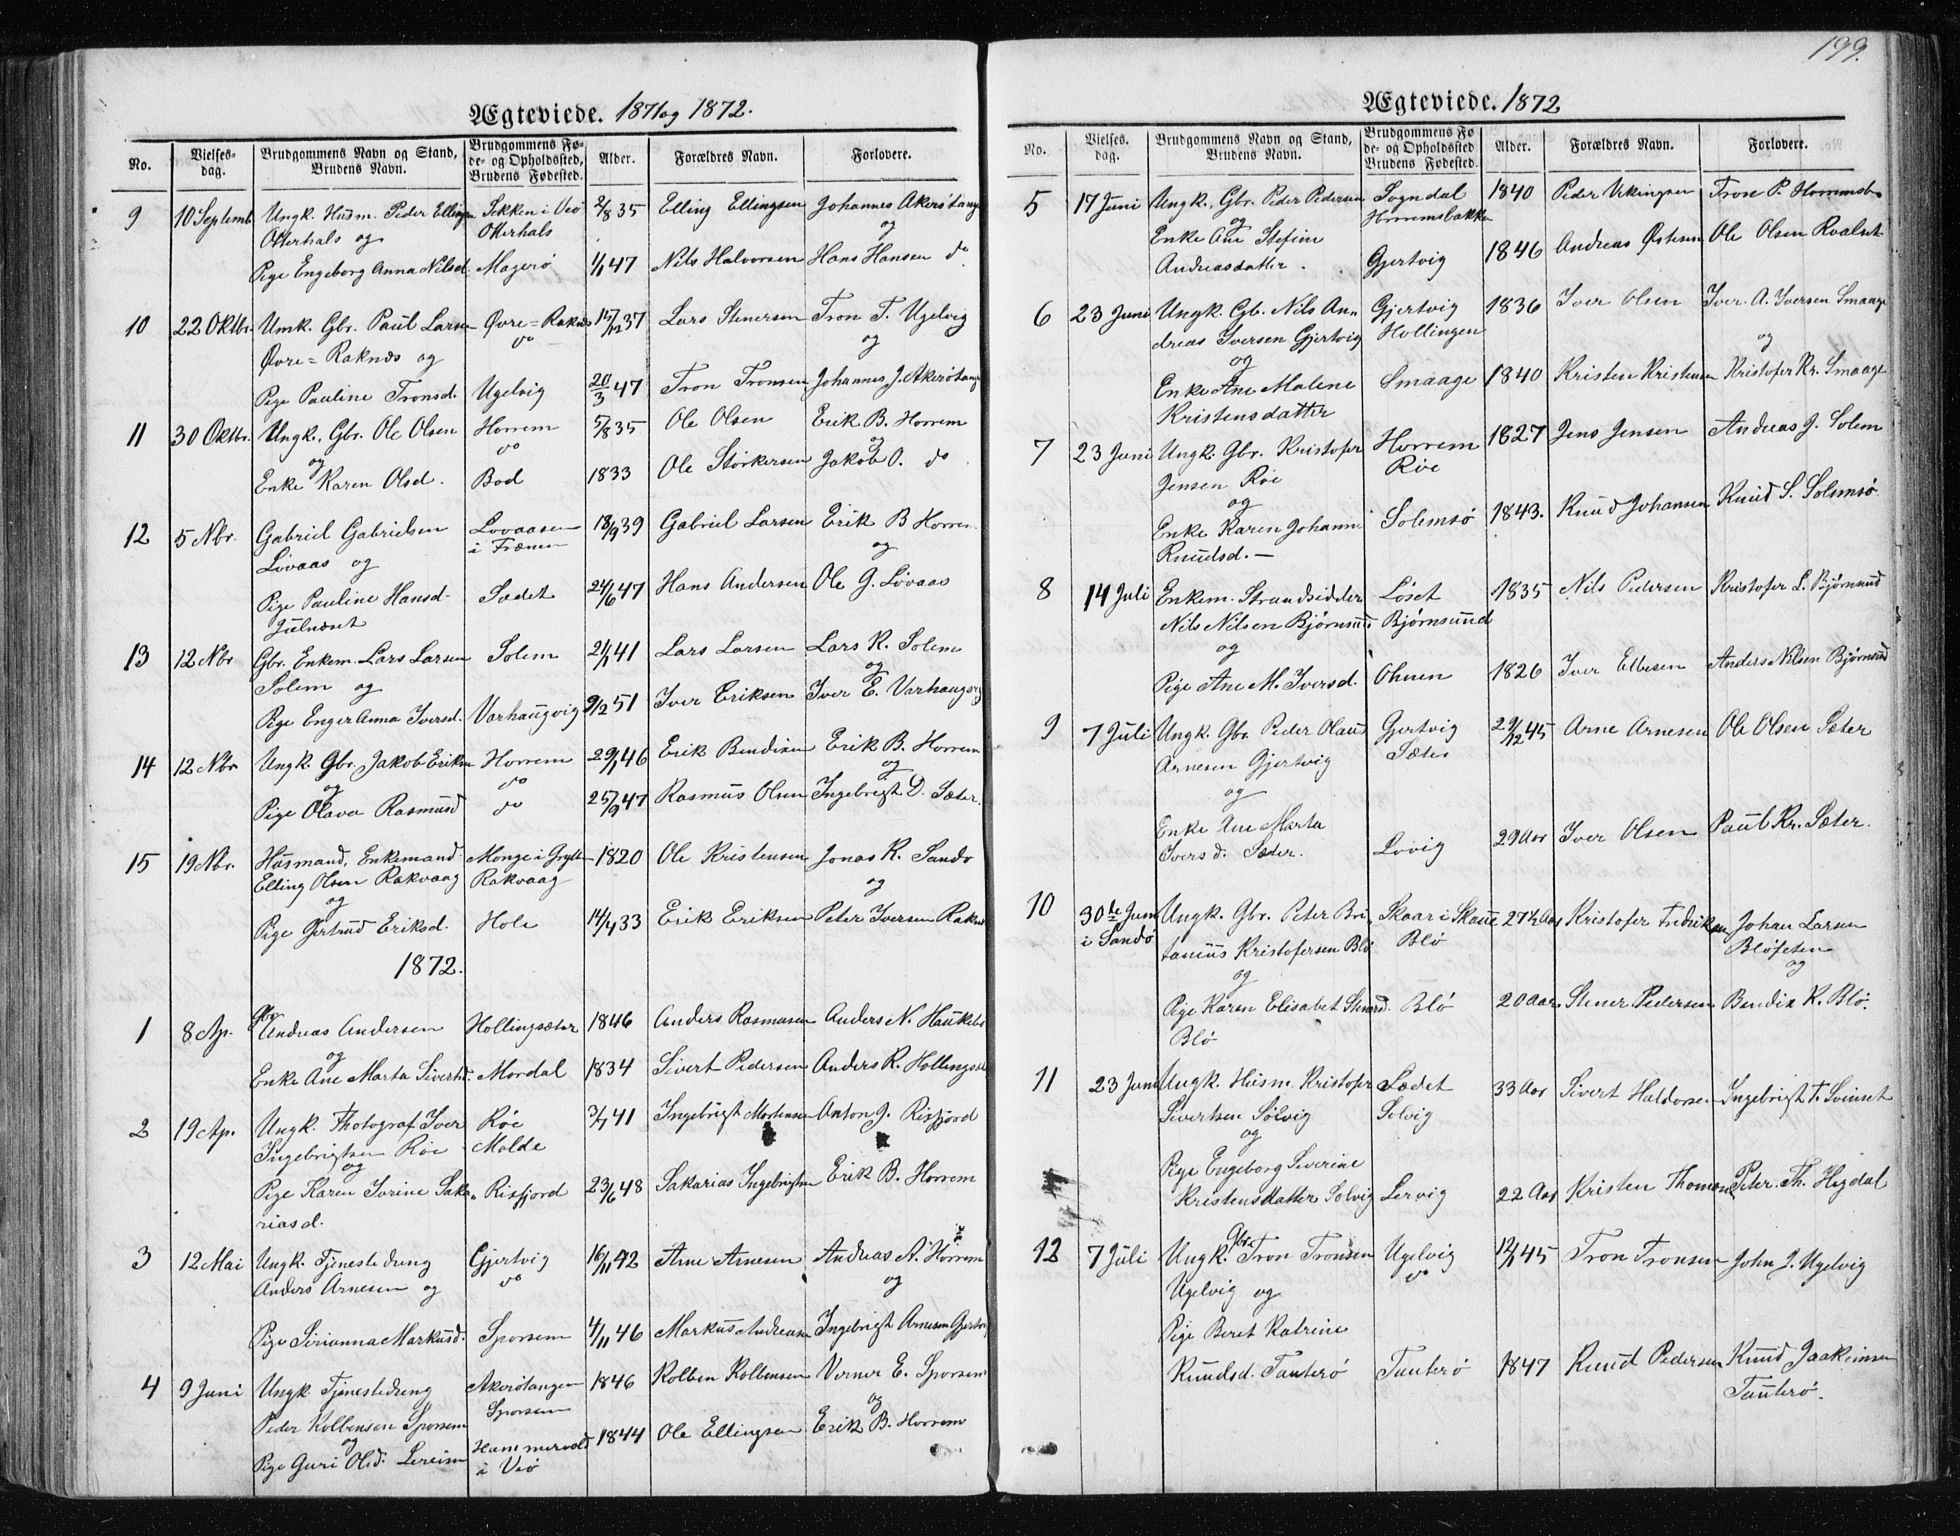 199.
Ægteviede. 1871 og 1872.
No. Vielses-dag. Brudgommens Navn og Stand, Brudens Navn. Brudgommens Fø-de- og Opholdssted, Brudens Fødested. Alder. Forældres Navn. Forlovere.
9 10 Septemb. Ungk. Husm. Peder Ellingsen Sekken i Veø 2/8 35 Elling Ellingsen Johannes Akerøtangen
Otterhals og Otterhals og
Pige Engeborg Anna Nilsd. Magerø 1/1 47 Nils Halvorsen Hans Hansen do
10 22 Oktbr. Umk. Gbr. Paul Larsen Øvre=Raknæs 15/12 37 Lars Stenersen Tron T. Ugelvig
Øvre=Raknæs og do og
Pige Pauline Tronsd. Ugelvig 20/3 47 Tron Tronsen Johannes J. Akerøtangen
11 30 Oktbr. Ungk. Gbr. Ole Olsen Horrem 5/8 35 Ole Olsen Erik B. Horrem
og do og
Enke Karen Olsd. Bod 1833 Ole Størkersen Jakob O. do
12 5 Nbr. Gabriel Gabrielsen Lovaasen 18/9 39 Gabriel Larsen Erik B Horrem
Lovaas og i Frænen og
Pige Pauline Hansd. Sædet 24/6 47 Hans Andersen Ole G. Lovaas
Julnæset
13 12 Nbr Gbr. Enkem. Lars Larsen Solem 21/1 41 Lars Larsen Lars K. Solem
Solem og og
Pige Enger Anna Iversd. Varhaugvig 9/2 51 Iver Eriksen Iver E. Varhaugvig
14 12 Nbr Ungk. Gbr. Jakob Eriksen Horrem 29/1 46 Erik Bendixen Erik B. Horrem
og do og
Pige Olava Rasmusd do 25/9 47 Rasmus Olsen Ingebrigt D. Sæter.
15 19 Nbr. Husmand, Enkemand Monge i Grytten 1820 Ole Kristensen Jonas K. Sandø
Elling Olsen Rakvaag Rakvaag
og og
Pige Gjertrud Eriksd. Hole 14/4 33 Erik Eriksen Peter Iversen
1872.
1 8 Ap. Gbr. Andreas Andersen Hollingsæter 1846 Anders Rasmusen Anders N. Haukebø
og
Enke Ane Marta Sivertsd. Mordal 1834 Sivert Pedersen Anders R. Hollingsæt
2 19 Ap. Ungk. Fhotograf Iver Røe 3/7 41 Ingebrigt Mortensen Anton J. Risfjord
Ingebrigtsen Røe Molde
og
Pige Karen Ivrine Saka- Risfjord 23/6 48 Sakarias Ingebrigtsen Erik B. Horrem
riasd.
3 12 Mai Ungk. Tjenestedreng Gjertvig 16/11 42 Arne Arnesen Andreas A. Horrem
Anders Arnesen og do og
Pige Sirianna Markusd. Sporsem 4/11 46 Markus Andreasen Ingebrigt Arnesen Gjertvig
4 9 Juni Ungk. Tjenestedreng Akerøtangen 1846 Kolben Kolbensen Verner E. Sporsem
Peder Kolbensen Sporsem Sporsem
og og
Pige Guri Olsd. Lereim Hammervold 1844 Ole Ellingsen Erik B. Horrem
i Veø
Ægteviede. 1872
No. Vielses-dag. Brudgommens Navn og Stand, Brudens Navn. Brudgommens Fø-de- og Opholdssted Brudens Fødested. Alder. Forældres Navn. Forlovere.
5 17 Juni Ungk. Gbr. Peder Pedersen Sogndal 1840 Peder Vikingsen Tron P. Horremsb.
og Horremsbakken
Enke Ane Stefine 1846 Andreas Østesen Ole Olsen Roalset
Andreasdatter. Gjertvig
6 23 Juni Ungk. Gb. Nils An- Gjertvig 1836 Iver Olsen Iver A. Iversen Smaage
dreas Iversen Gjertvig Hollingen
og og
Enke Ane Malene Smaage 1840 Kristen Kristensen Kristofer Kr. Smaage
Kristensdatter
7 23 Juni Ungk. Gbr. Kristofer Horrem 1827 Jens Jensen Andreas J. Solem
Jensen Røe Røe
og
Enke Karen Johanne Solemsø 1843. Knud Johansen Knud S. Solemsø
Knudsd. —
8 14 Juli Enkem. Strandsidder Løset 1835 Nils Pedersen Kristofer L. Bjørnsund
Nils Nilsen Bjørnsund Bjørnsund
og
Pige Ane M. Iversd. Ohnen 1826 Iver Anders Nilsen Bjørnsund
9 7 Juli Ungk. Gbr. Peder Olaus Gjertvig 29/12 45 Arne Arnesen Ole Olsen Sæter
Arnesen Gjertvig Sæter
og
Enke Ane Marta
Iversd. Sæter. Lovig 29 Aar Iver Olsen Paul Kr. Sæter.
10 30te Juni Ungk. Gbr. Peter Bri- Skaar i 27½ Aar Kristofer Fredriksen Johan Larsen
i Sandø tanius Kristofersen Blø Blø Bløfeten
og og
Pige Karen Elisabet Stenersd. Blø 20 Aar Stener Pedersen Bendix K. Blø.
Blø
11 23 Juni Ungk. Husm. Kristofer Sædet 33 Aar Sivert Haldorsen Ingebrigt T. Svinset
Sivertsen Solvig Solvig
og
Pige Engeborg Siverine
Kristensdatter Solvig Lervig 22 Aar Kristen Thomasen Peter. Th. Hegdal
12 7 Juli Ungk. Gbr. Tron Tronsen Ugelvig 12/1 45 Tron Tronsen John J. Ugelvig
Ugelvig og do
Pige Beret Katrine
Knudsd. Tauterø Tauterø 1847 Knud Pedersen Knud Joakimsen
Tauterø.